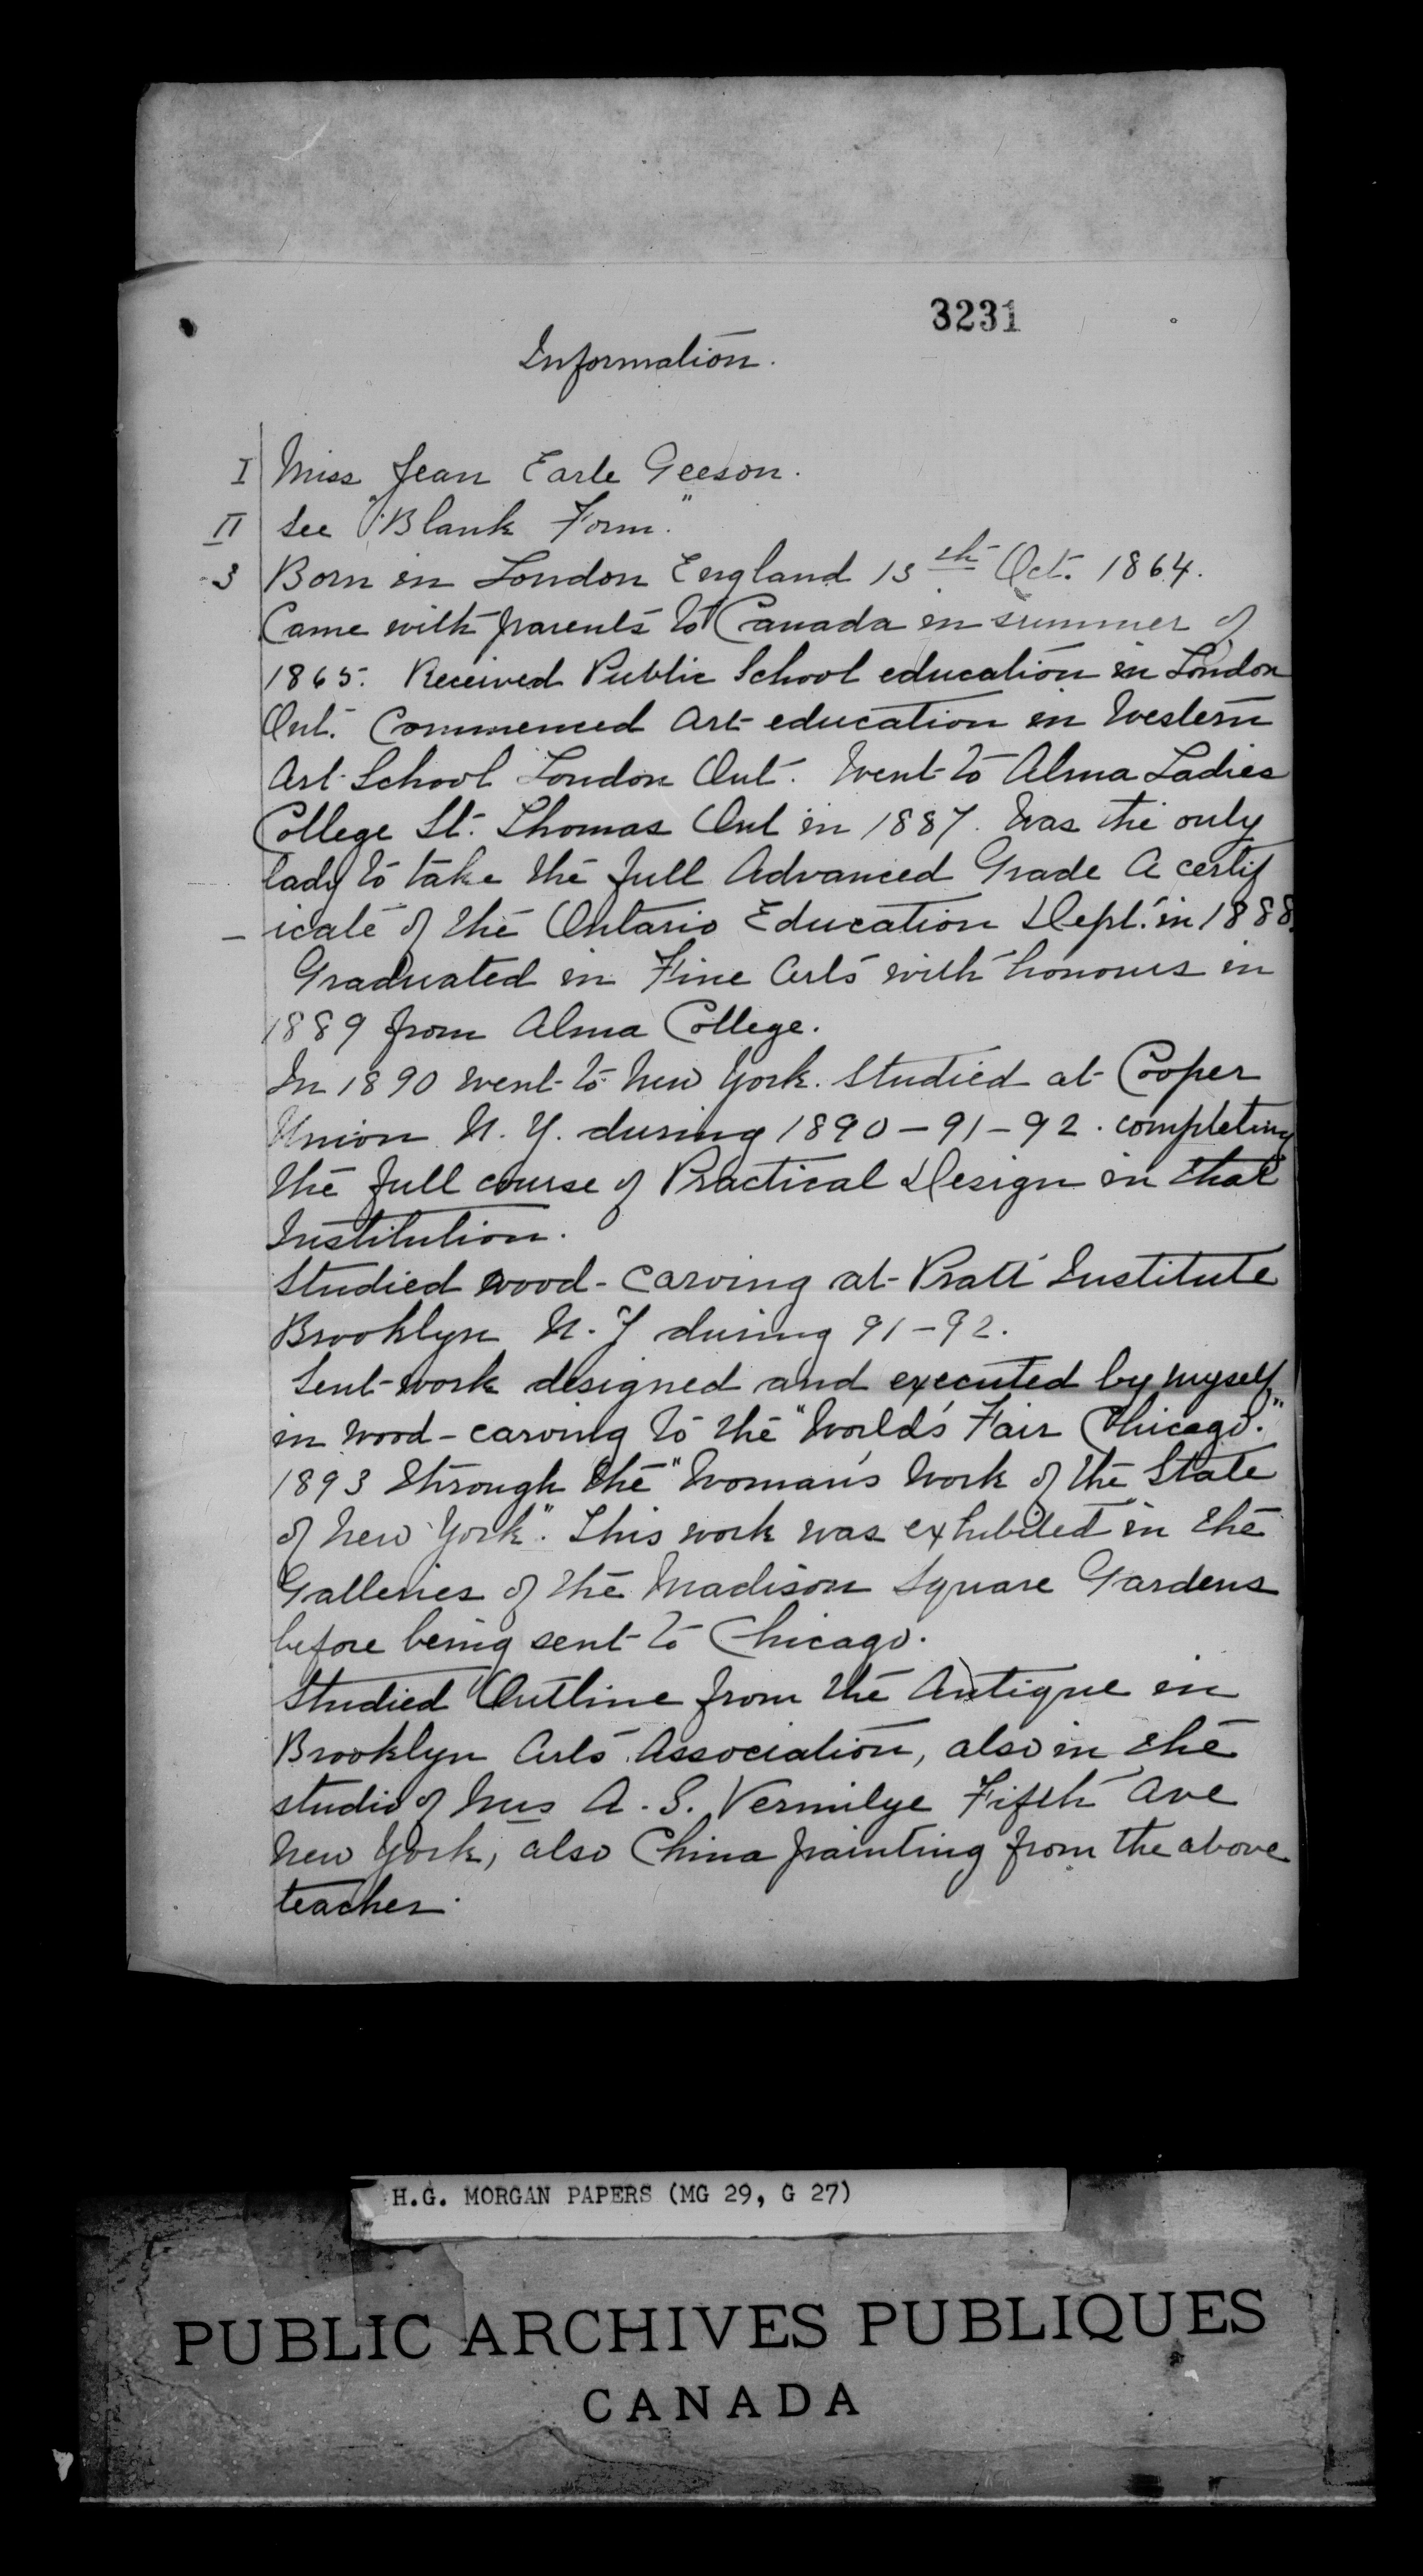 3231
Information.
I Miss Jean Earle Geeson.
II See "Blank Form."
3 Born in London England 15th Oct. 1864.
Came with parents to Canada in summer of
1865. Received Public School education in London
Ont. Commenced Art education in Western
Art School London Ont. Went to Alma Ladies
College St. Thomas Ont in 1887. Was the only
lady to take the full Advanced Grade A certif
icate of the Ontario Education Dept. in 1888.
Graduated in Fine Arts with honours in
1889 from Alma College.
In 1890 went to New York. Studied at Cooper
Union N. Y. during 1890-91-92. completing
the full course of Practical Design in that
Institution.
Studied wood-carving at Pratt Institute
Brooklyn N. Y during 91-92.
Sent work designed and executed by myself,
in wood-carving to the "World's Fair Chicago."
1893 through the "Woman's Work of the State
of New York". This work was exhibited in the
Galleries of the Madison Square Gardens
before being sent to Chicago.
Studied Outline from the Antique in
Brooklyn Arts Association, also in the
studio of Mrs A. S. Vermilye Fifth Ave
New York, also China painting from the above
teacher.
H.G. MORGAN PAPERS (MG 29, G 27)
PUBLIC ARCHIVES PUBLIQUES
CANADA